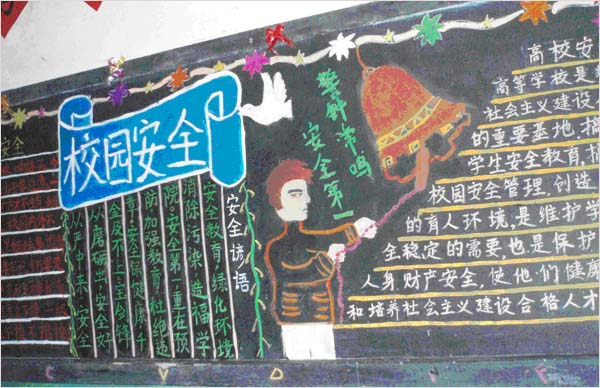 安全
校园安全
安全谚语
安全教育,绿化环境
消除污染,造福学
院,安全第一,重在预
防,加强教育,杜绝违
章,安全保健康,千
金及不上,宝剑锋
从磨砺出,安全好
从严中来,安全
警钟常鸣
安全第一
高校安
高等学校是
社会主义建设
的重要基地,搞
学生安全教育,搞
校园安全管理,创造
的育人环境,是维护学
全稳定的需要,也是保护
人身,财产安全,使他们健康
和培养社会主义建设合格人才